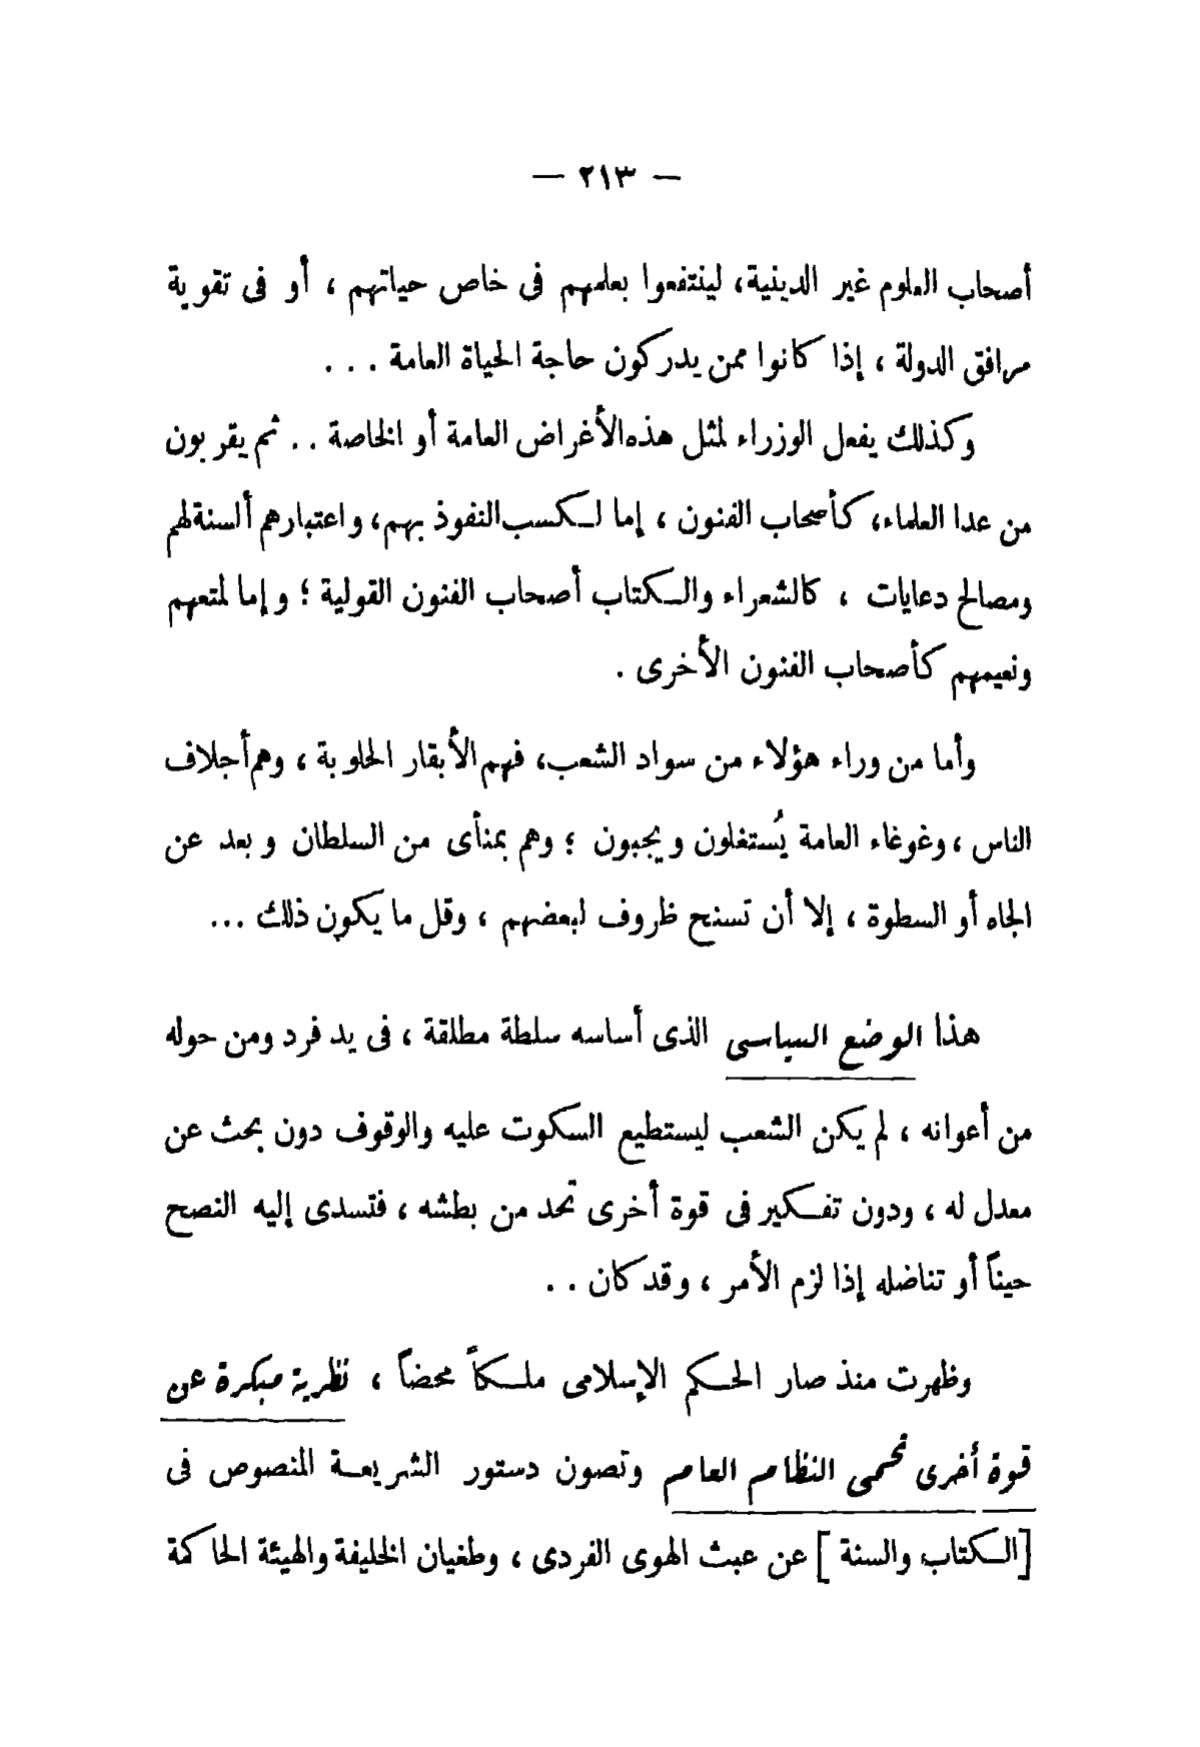 — ٢١٣ —
أصحاب العلوم غير الدينية، لينتفعوا بعلمهم فى خاص حياتهم ، أو فى تقوية
مرافق الدولة ، إذا كانوا ممن يدركون حاجة الحياة العامة . . .
وكذلك يفعل الوزراء لمثل هذه الأغراض العامة أو الخاصة . . ثم يقربون
من عدا العلماء، كأصحاب الفنون ، إما لكسب النفوذ بهم، واعتبارهم ألسنة لهم
ومصالح دعايات ، كالشعراء والكتاب أصحاب الفنون القولية ؛ وإما لمتعهم
ونعيمهم كأصحاب الفنون الأخرى .
وأما من وراء هؤلاء من سواد الشعب، فهم الأبقار الحلوبة ، وهم أجلاف
الناس ، وغوغاء العامة يُستغلون ويجبون ؛ وهم بمنأى من السلطان وبعد عن
الجاه أو السطوة ، إلا أن تسنح ظروف لبعضهم ، وقل ما يكون ذلك ...
هذا الوضع السياسى الذى أساسه سلطة مطلقة ، فى يد فرد ومن حوله
من أعوانه ، لم يكن الشعب ليستطيع السكوت عليه والوقوف دون بحث عن
معدل له ، ودون تفكير فى قوة أخرى تحد من بطشه ، فتسدى إليه النصح
حيناً أو تناضله إذا لزم الأمر ، وقد كان . .
وظهرت منذ صار الحكم الإسلامى ملكاً محضاً ، نظرية مبكرة عن
قوة أخرى تحمى النظام العام وتصون دستور الشريعة المنصوص فى
[الكتاب والسنة ] عن عبث الهوى الفردى ، وطغيان الخليفة والهيئة الحاكمة